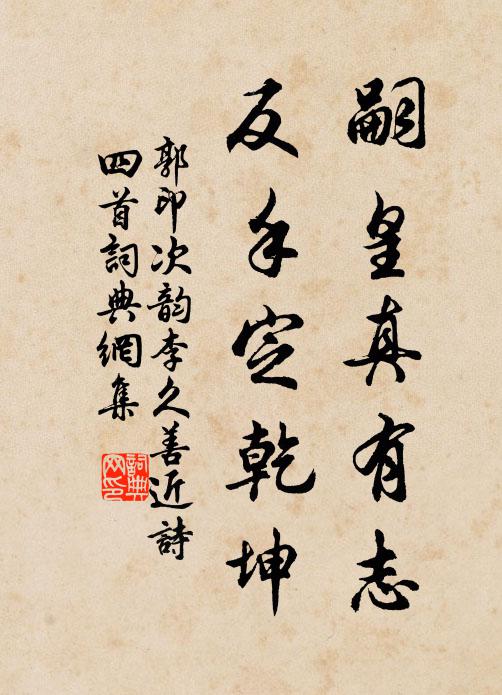 嗣皇真有志
反手定乾坤
郭印次韵李久善近詩
四首詞典網集
詞典網印